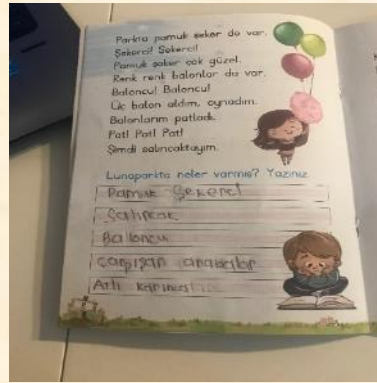 Parkta pamuk şeker de var.
Şekerci! Şekerci!
Pamuk şeker çok güzel.
Renk renk balonlar da var.
Baloncu! Baloncu!
Üç balon aldım, oynadım.
Balonlarım patladı.
Pat! Pat! Pat!
Şimdi salıncaktayım.
Lunaparkta neler varmış? Yazınız.
Pamuk Şekerci
Salıncak
Baloncu
Çarpışan arabalar
Atlı karınca